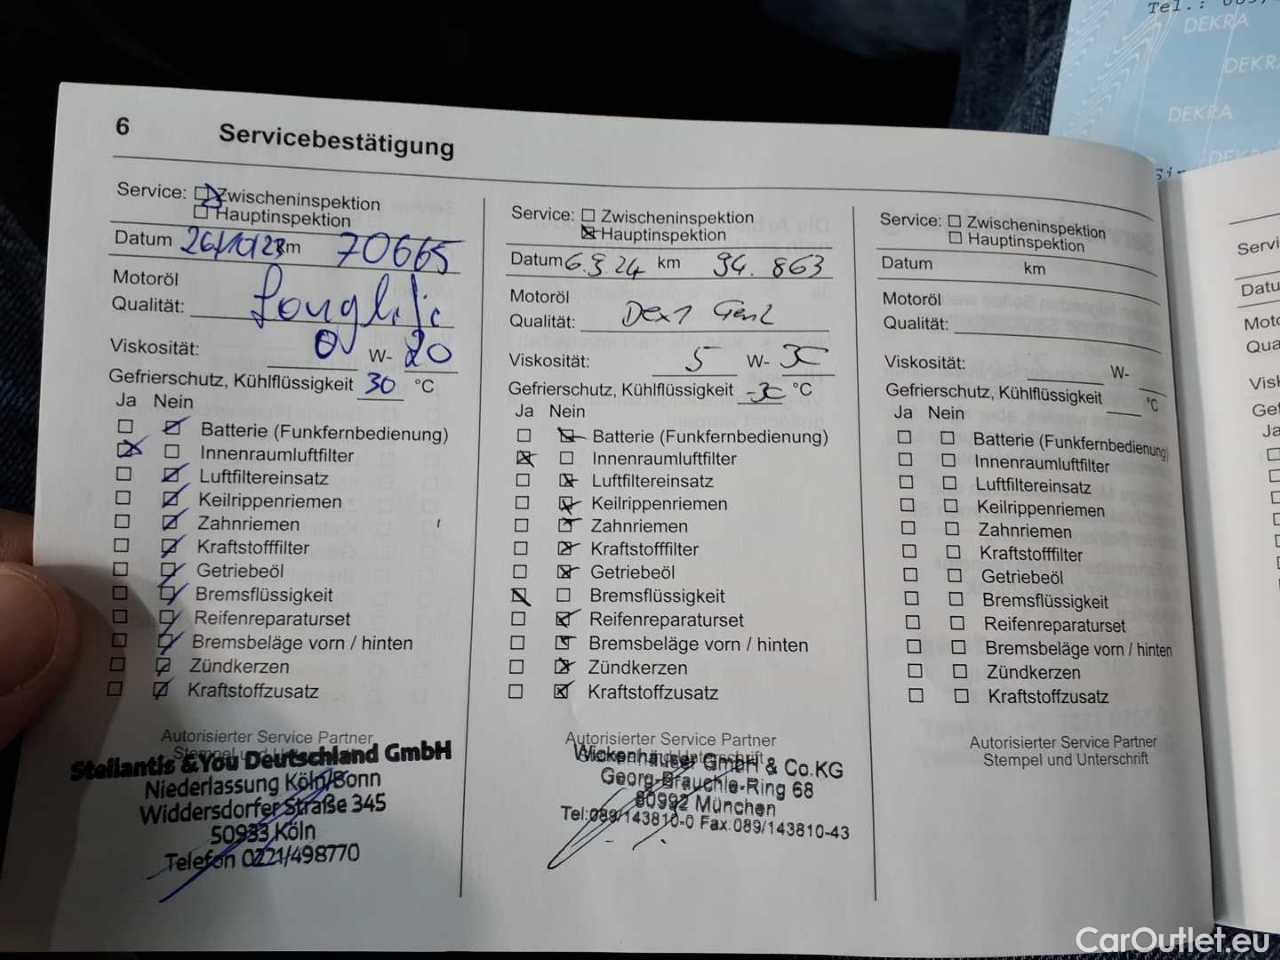 6 Servicebestätigung
Service: Zwischeninspektion
Hauptinspektion
Datum 26/10/23 km 70665
Motoröl
Qualität: Longlife
Viskosität: 0 W- 20
Gefrierschutz, Kühlflüssigkeit 30 °C
Ja Nein
Batterie (Funkfernbedienung)
Innenraumluftfilter
Luftfiltereinsatz
Keilrippenriemen
Zahnriemen
Kraftstofffilter
Getriebeöl
Bremsflüssigkeit
Reifenreparaturset
Bremsbeläge vorn / hinten
Zündkerzen
Kraftstoffzusatz
Autorisierter Service Partner
Stempel und Unterschrift
Stellantis &You Deutschland GmbH
Niederlassung Köln/Bonn
Widdersdorfer Straße 345
50933 Köln
Telefon 0221/498770
Service: Zwischeninspektion
Hauptinspektion
Datum 6.9.24 km 94.863
Motoröl
Qualität: Dex1 Gen2
Viskosität: 5 W- 30
Gefrierschutz, Kühlflüssigkeit -30 °C
Ja Nein
Batterie (Funkfernbedienung)
Innenraumluftfilter
Luftfiltereinsatz
Keilrippenriemen
Zahnriemen
Kraftstofffilter
Getriebeöl
Bremsflüssigkeit
Reifenreparaturset
Bremsbeläge vorn / hinten
Zündkerzen
Kraftstoffzusatz
Autorisierter Service Partner
Stempel und Unterschrift
Wickenhäuser GmbH & Co.KG
Georg-Brauchle-Ring 68
80992 München
Tel:089/143810-0 Fax.089/143810-43
Service: Zwischeninspektion
Hauptinspektion
Datum km
Motoröl
Qualität:
Viskosität: W-
Gefrierschutz, Kühlflüssigkeit °C
Ja Nein
Batterie (Funkfernbedienung)
Innenraumluftfilter
Luftfiltereinsatz
Keilrippenriemen
Zahnriemen
Kraftstofffilter
Getriebeöl
Bremsflüssigkeit
Reifenreparaturset
Bremsbeläge vorn / hinten
Zündkerzen
Kraftstoffzusatz
Autorisierter Service Partner
Stempel und Unterschrift
Tel.:
DEKRA
DEKRA
DEKRA
DEKRA
CarOutlet.eu